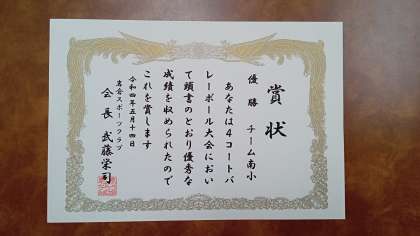 賞状
優勝 チーム南小
あなたは4コートバ
レーボール大会におい
て頭書のとおり優秀な
成績を収められたので
これを賞します
令和四年五月十四日
スポーツクラブ
会長 武藤栄司